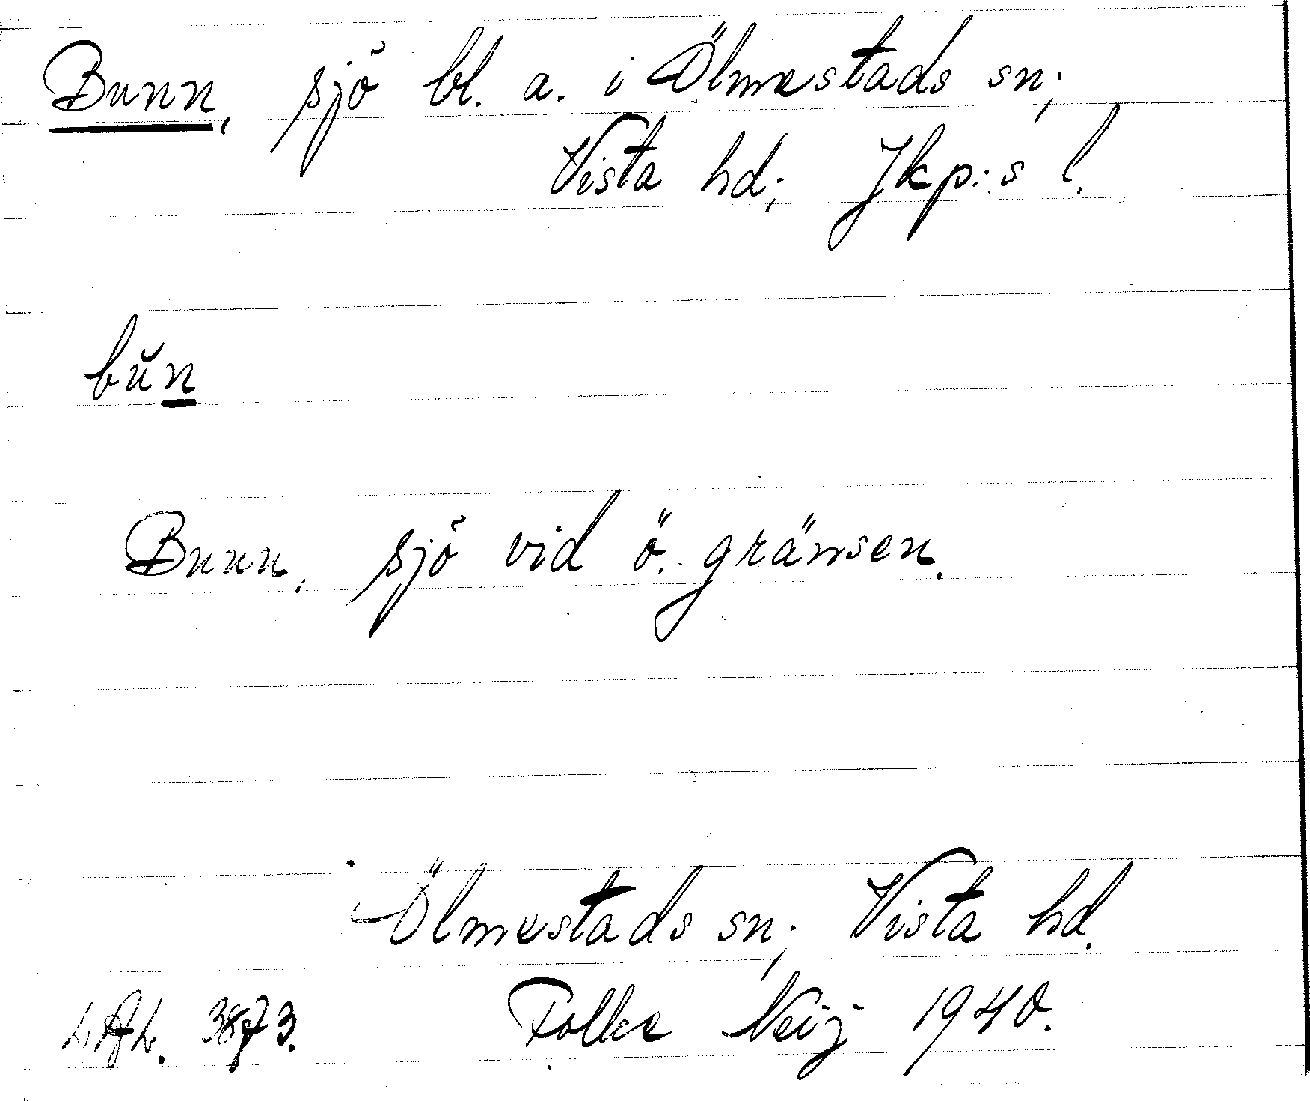 Bunn, sjö bl. a. i Ölmestads sn;
Vista hd; Jkp:s l.
bŭn
Bunn, sjö vid ö. gränsen.
Ölmestads sn; Vista hd.
LAL. 3873. Folke Neij 1940.